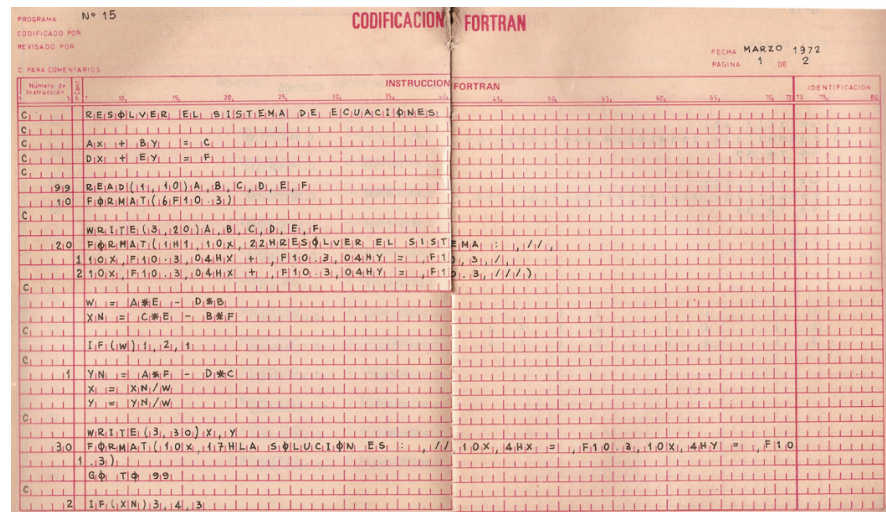 PROGRAMA Nº 15
CODIFICACION FORTRAN
CODIFICADO POR
REVISADO POR
FECHA MARZO 1972
PAGINA 1 DE 2
C. PARA COMENTARIOS
Número de Instrucción Cont INSTRUCCION FORTRAN IDENTIFICACION
1 5 6 7 10 15 20 25 30 35 40 45 50 55 60 65 70 72 73 75 80
C RESØLVER EL SISTEMA DE ECUACIØNES
C
C AX + BY = C
C DX + EY = F
C
99 READ(1,10)A,B,C,D,E,F
10 FØRMAT(6F10.3)
C
WRITE(3,20)A,B,C,D,E,F
20 FØRMAT(1H1,10X,22HRESØLVER EL SISTEMA : ,//,
1 10X,F10.3,04HX + ,F10.3,04HY = ,F10.3,/,
2 10X,F10.3,04HX + ,F10.3,04HY = ,F10.3,///)
C
W = A*E - D*B
XN = C*E - B*F
C
IF(W)1,2,1
C
1 YN = A*F - D*C
X = XN/W
Y = YN/W
C
WRITE(3,30)X,Y
30 FØRMAT(10X,17HLA SØLUCIØN ES : ,//,10X,4HX = ,F10.3,10X,4HY = ,F10
1 .3)
GØ TØ 99
C
2 IF(XN)3,4,3